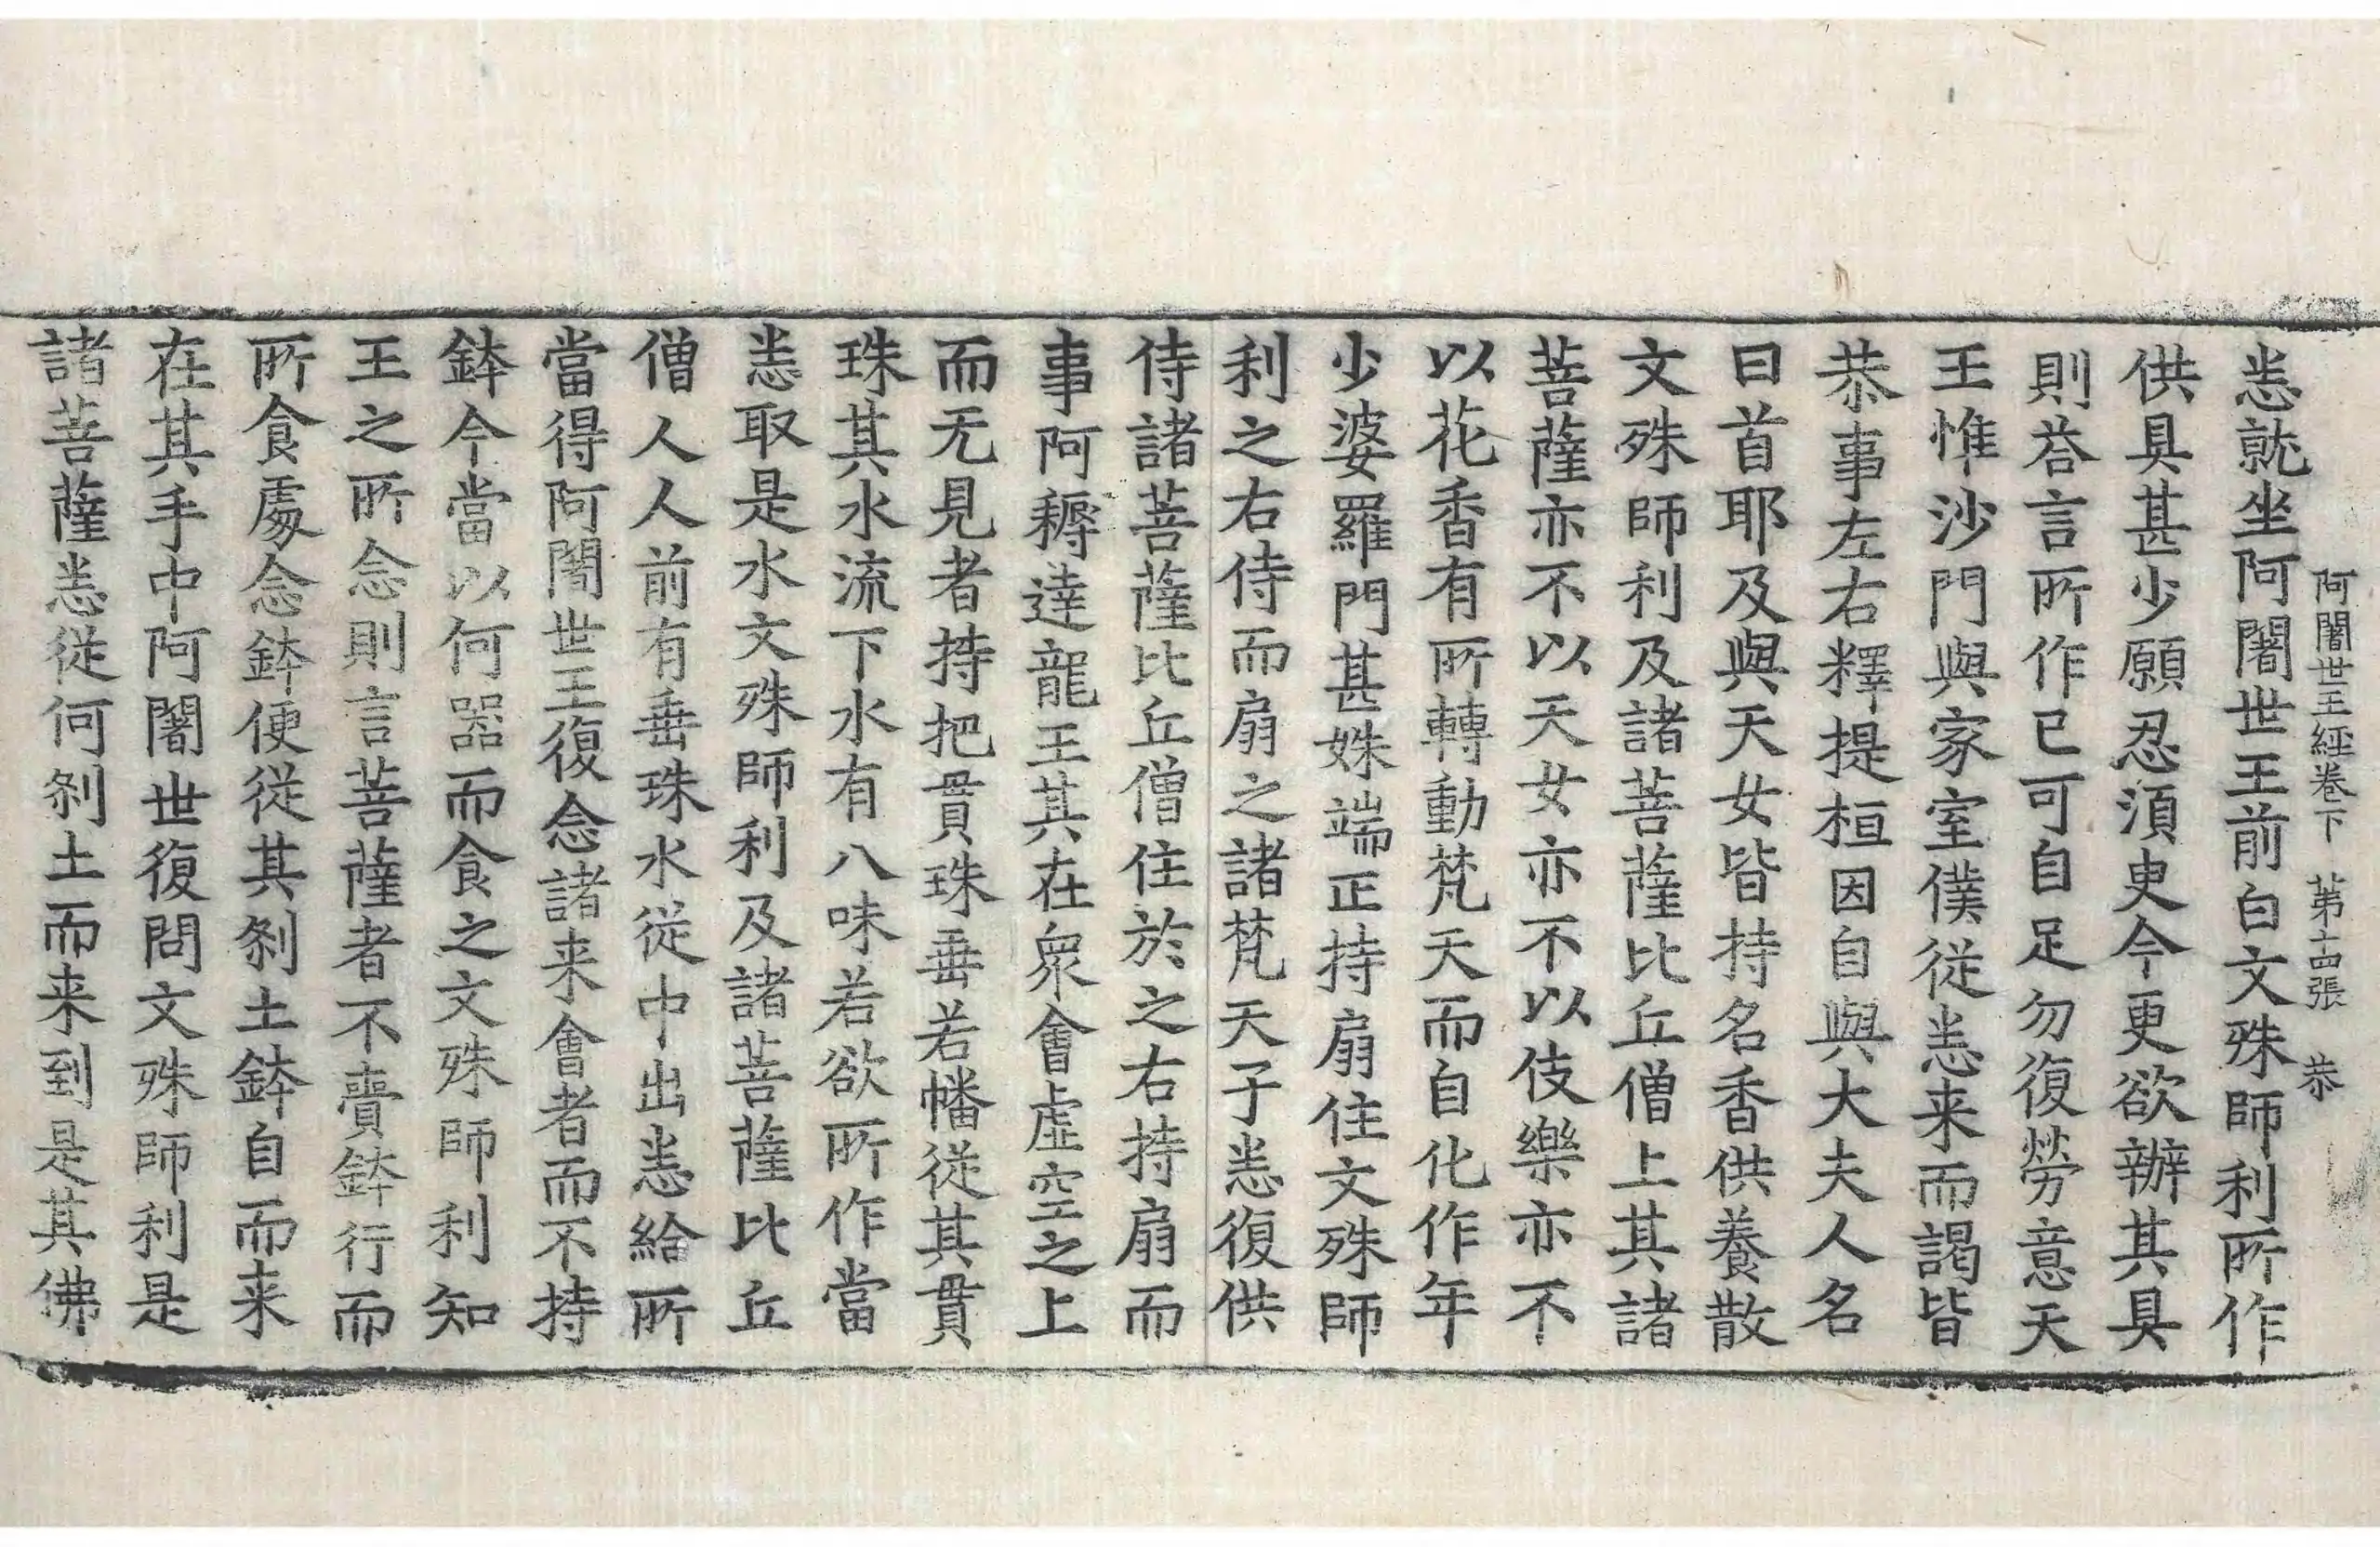 阿闍世王經卷下 第十四張 恭
悉就坐阿闍世王前白文殊師利所作
供具甚少願忍須臾今更欲辦其具
則荅言所作已可自足勿復勞意天
王惟沙門與家室僕從悉来而謁皆
恭事左右釋提桓因自與大夫人名
曰首耶及與天女皆持名香供養散
文殊師利及諸菩薩比丘僧上其諸
菩薩亦不以天女亦不以伎樂亦不
以花香有所轉動梵天而自化作年
少婆羅門甚姝端正持扇住文殊師
利之右侍而扇之諸梵天子悉復供
侍諸菩薩比丘僧住於之右持扇而
事阿耨達龍王其在衆會虛空之上
而无見者持把貫珠垂若幡從其貫
珠其水流下水有八味若欲所作當
悉取是水文殊師利及諸菩薩比丘
僧人人前有垂珠水從中出悉給所
當得阿闍世王復念諸来會者而不持
鉢今當以何器而食之文殊師利知
王之所念則言菩薩者不賷鉢行而
所食處念鉢便從其剎土鉢自而来
在其手中阿闍世復問文殊師利是
諸菩薩悉從何剎土而来到是其佛